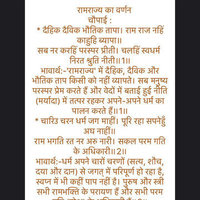 रामराज्य का वर्णन
चौपाई :
* दैहिक दैविक भौतिक तापा। राम राज नहिं
काहुहि ब्यापा॥
सब नर करहिं परस्पर प्रीती। चलहिं स्वधर्म
निरत श्रुति नीती॥1॥
भावार्थ:-'रामराज्य' में दैहिक, दैविक और
भौतिक ताप किसी को नहीं व्यापते। सब मनुष्य
परस्पर प्रेम करते हैं और वेदों में बताई हुई नीति
(मर्यादा) में तत्पर रहकर अपने-अपने धर्म का
पालन करते हैं॥1॥
* चारिउ चरन धर्म जग माहीं। पूरि रहा सपनेहुँ
अघ नाहीं॥
राम भगति रत नर अरु नारी। सकल परम गति
के अधिकारी॥2॥
भावार्थ:-धर्म अपने चारों चरणों (सत्य, शौच,
दया और दान) से जगत् में परिपूर्ण हो रहा है,
स्वप्न में भी कहीं पाप नहीं है। पुरुष और स्त्री
सभी रामभक्ति के परायण हैं और सभी परम